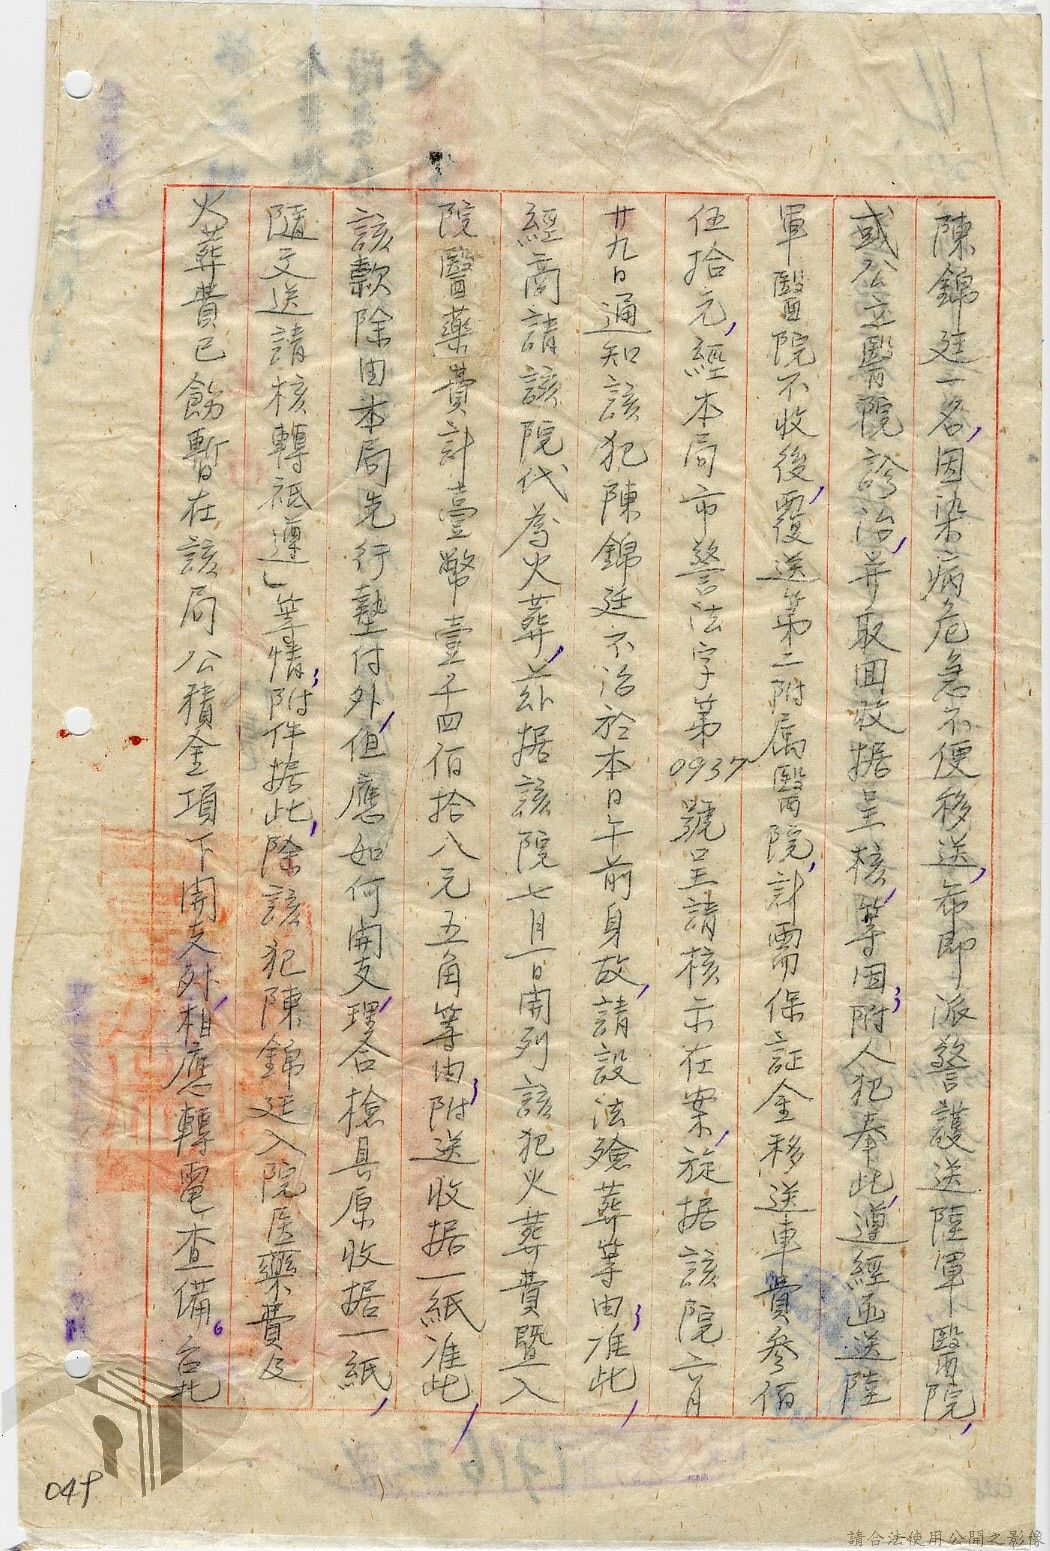 陳錦廷一名,因染病危急不便移送,希即派警護送陸軍醫院,
或公立醫院診治,并取回收据呈核,等因,附人犯奉此,遵經函送陸
軍醫院不收後,覆送第二附属醫院,計需保証金移送車費參佰
伍拾元,經本局市警法字第0937號呈請核示在案,旋据該院六月
廿九日通知該犯陳錦廷不治於本日午前身故,請設法殮葬等由,准此,
經商請該院代為火葬,茲据該院七月一日開列該犯火葬費暨入
院醫藥費計臺幣壹千四佰拾八元五角等由,附送收据一紙准此,
該款除由本局先行墊付外,但應如何開支,理合檢具原收据一紙,
隨文送請核轉祗遵」等情,附件据此,除該犯陳錦廷入院医藥費及
火葬費已飭暫在該局公積金項下開支外,相應轉電查備。台北
049
請合法使用公開之影像